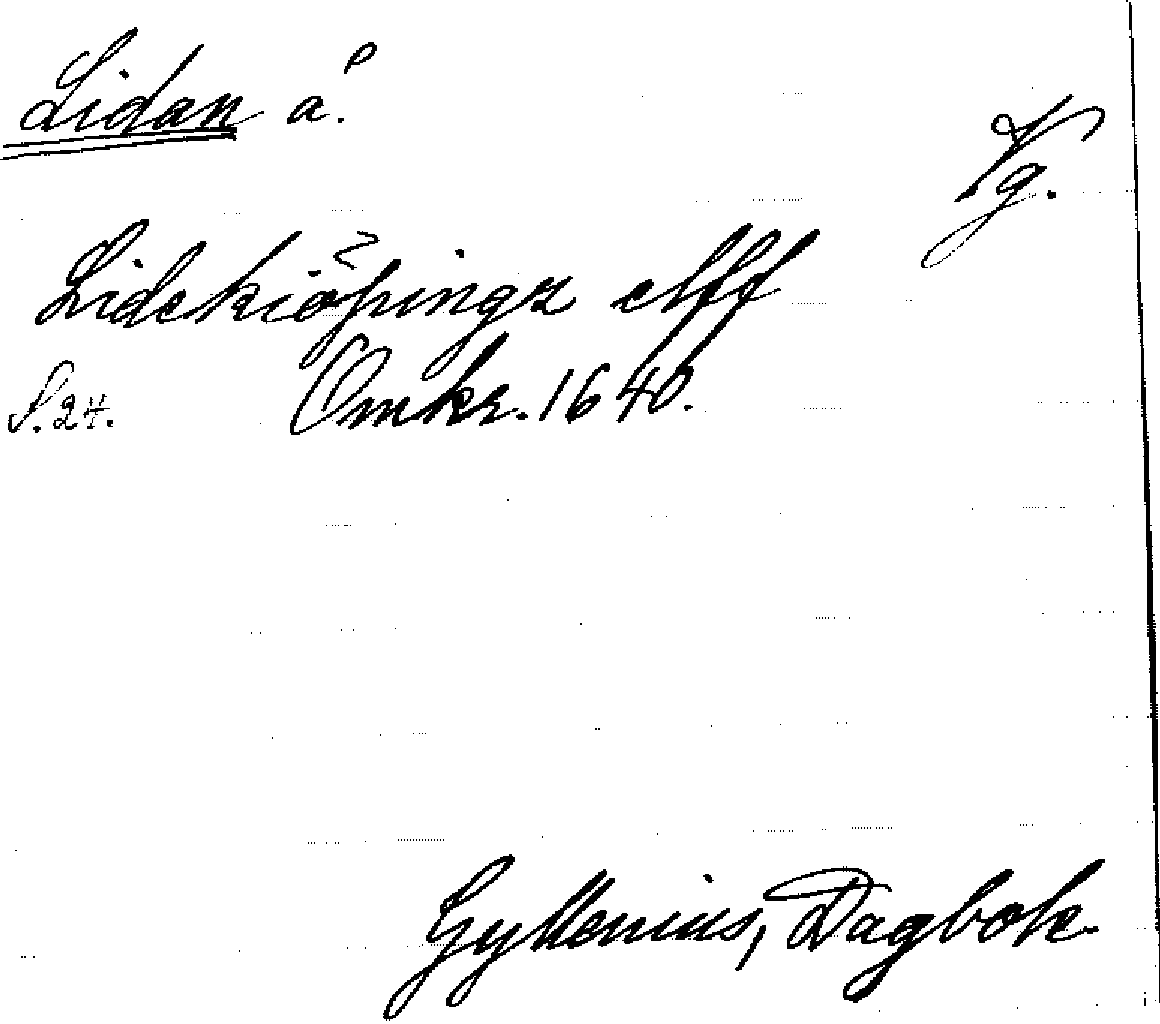 Lidan å.
Vg.
Lidekiöpingz elff
S. 24. Omkr. 1640.
Gyllenius, Dagbok.